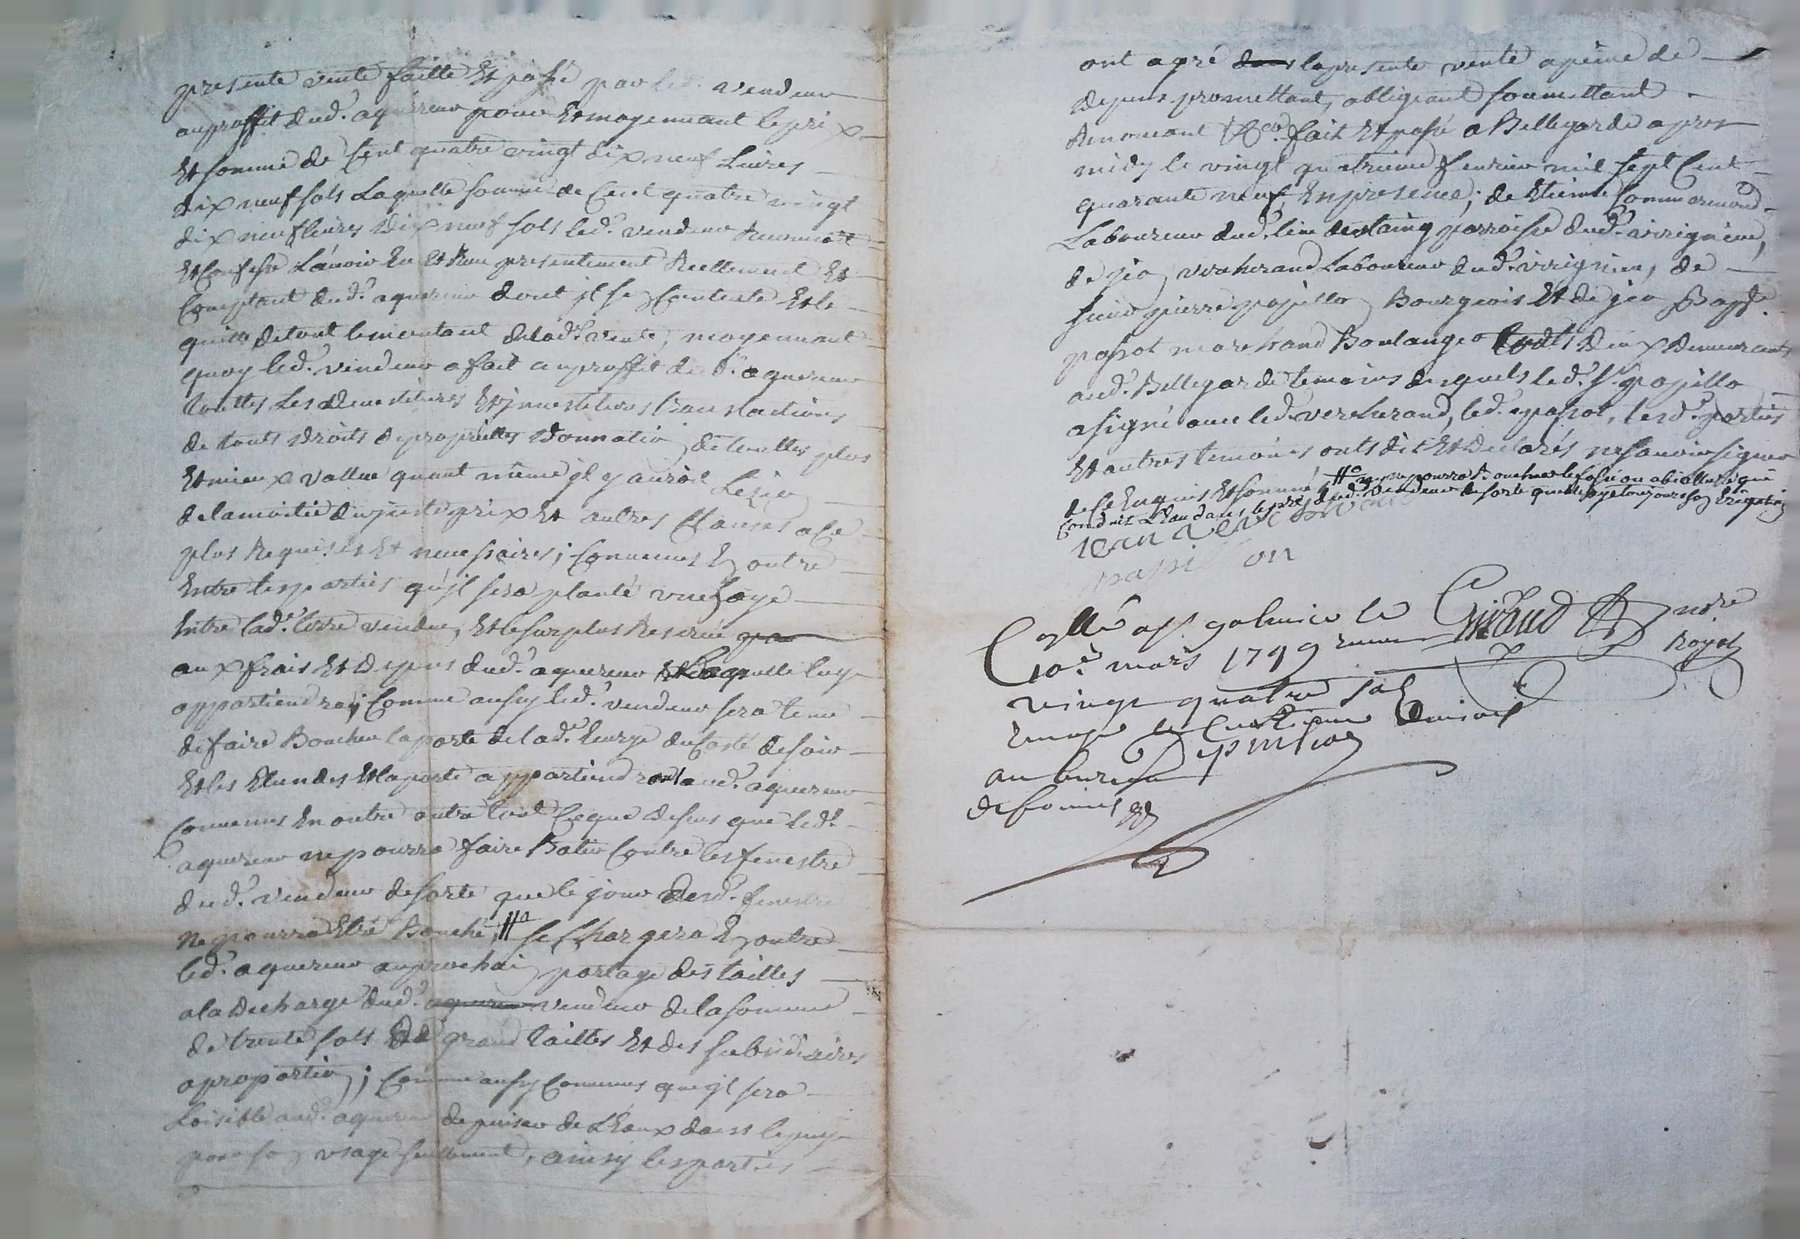 presente vente faitte et passé par led. vendeur
au proffit dud. aquereur pour et moyennant le prix
et somme de cent quatre vingt dix neuf livres
dix neuf sols laquelle somme de cent quatre vingt
dix neuf livres dix neuf sols led. vendeur
et confesse l'avoir eu et reçu presentement reellement et
comptant dud. aquereur dont il se contente et le
quitte de tout le montant de lad. vente, moyennant
quoy led. vendeur a fait au proffit dud. aquereur
touttes les devestitures et investitures translactions
de touts droits de proprietter donnation de touttes plus
et mieux vallue quant même il y auroit lezion
de la moitié du juste prix et autres clauses a ce
plus requises et necessaires; convenus en outre
entre les parties qu'il sera planté une haye
entre lad. terre vendue, et le surplus reservé
aux frais et depens dud. aquereur laquelle luy
appartiendra; comme aussy led. vendeur sera tenu
de faire boucher la porte de lad. du costé de soir
et les et la porte appartiendront aud. aquereur
convenus en outre outre tout ce que dessus que led.
aquereur ne pourra faire batir contre les fenestre
dud. vendeur de sorte que le jour desd. fenestre
ne pourra etre bouché, #a se chargera en outre
led. aquereur au prochain partage des tailles
a la decharge dud. aquereur vendeur de la somme
de trente sols de grand tailles et des subsidiaires
a proportion; comme aussy convenus qu'il sera
loisible aud. aquereur de puiser de l'eaux dans le puy
pour son usage seullement, ainsy les parties
ont agré la presente vente a peine de
depens promettant, obligeant soumettant
renonçant &ca. fait et passé a Bellegarde apres
midy le vingt quatrieme fevrier mil sept cent
quarante neuf en presence, de Etienne
laboureur dud. lieu parroisse dud. virignieu,
de jean verchерand laboureur dud. virignieu, de
sieur pierre papillon Bourgeois et de jean Bapte.
passot marchand Boulanger touts deux demeurants
aud. Bellegarde temoins desquels led. sr. papillon
a signé avec led. vercherand, led. passot, lesd. parties
et autres temoins onts dit et declarés ne sçavoir signer
de ce enquis et sommé, #a ne pourra boucher le fossé ou abial qui
conduit l'eau dans le pré dud. vendeur de sorte qu'elle aye toujours son
jean vercherand
papillon
Collé a st galmier le Giraud nore
10e. mars 1749 royal
vingt quatre sols
renvoyé le
au bureau